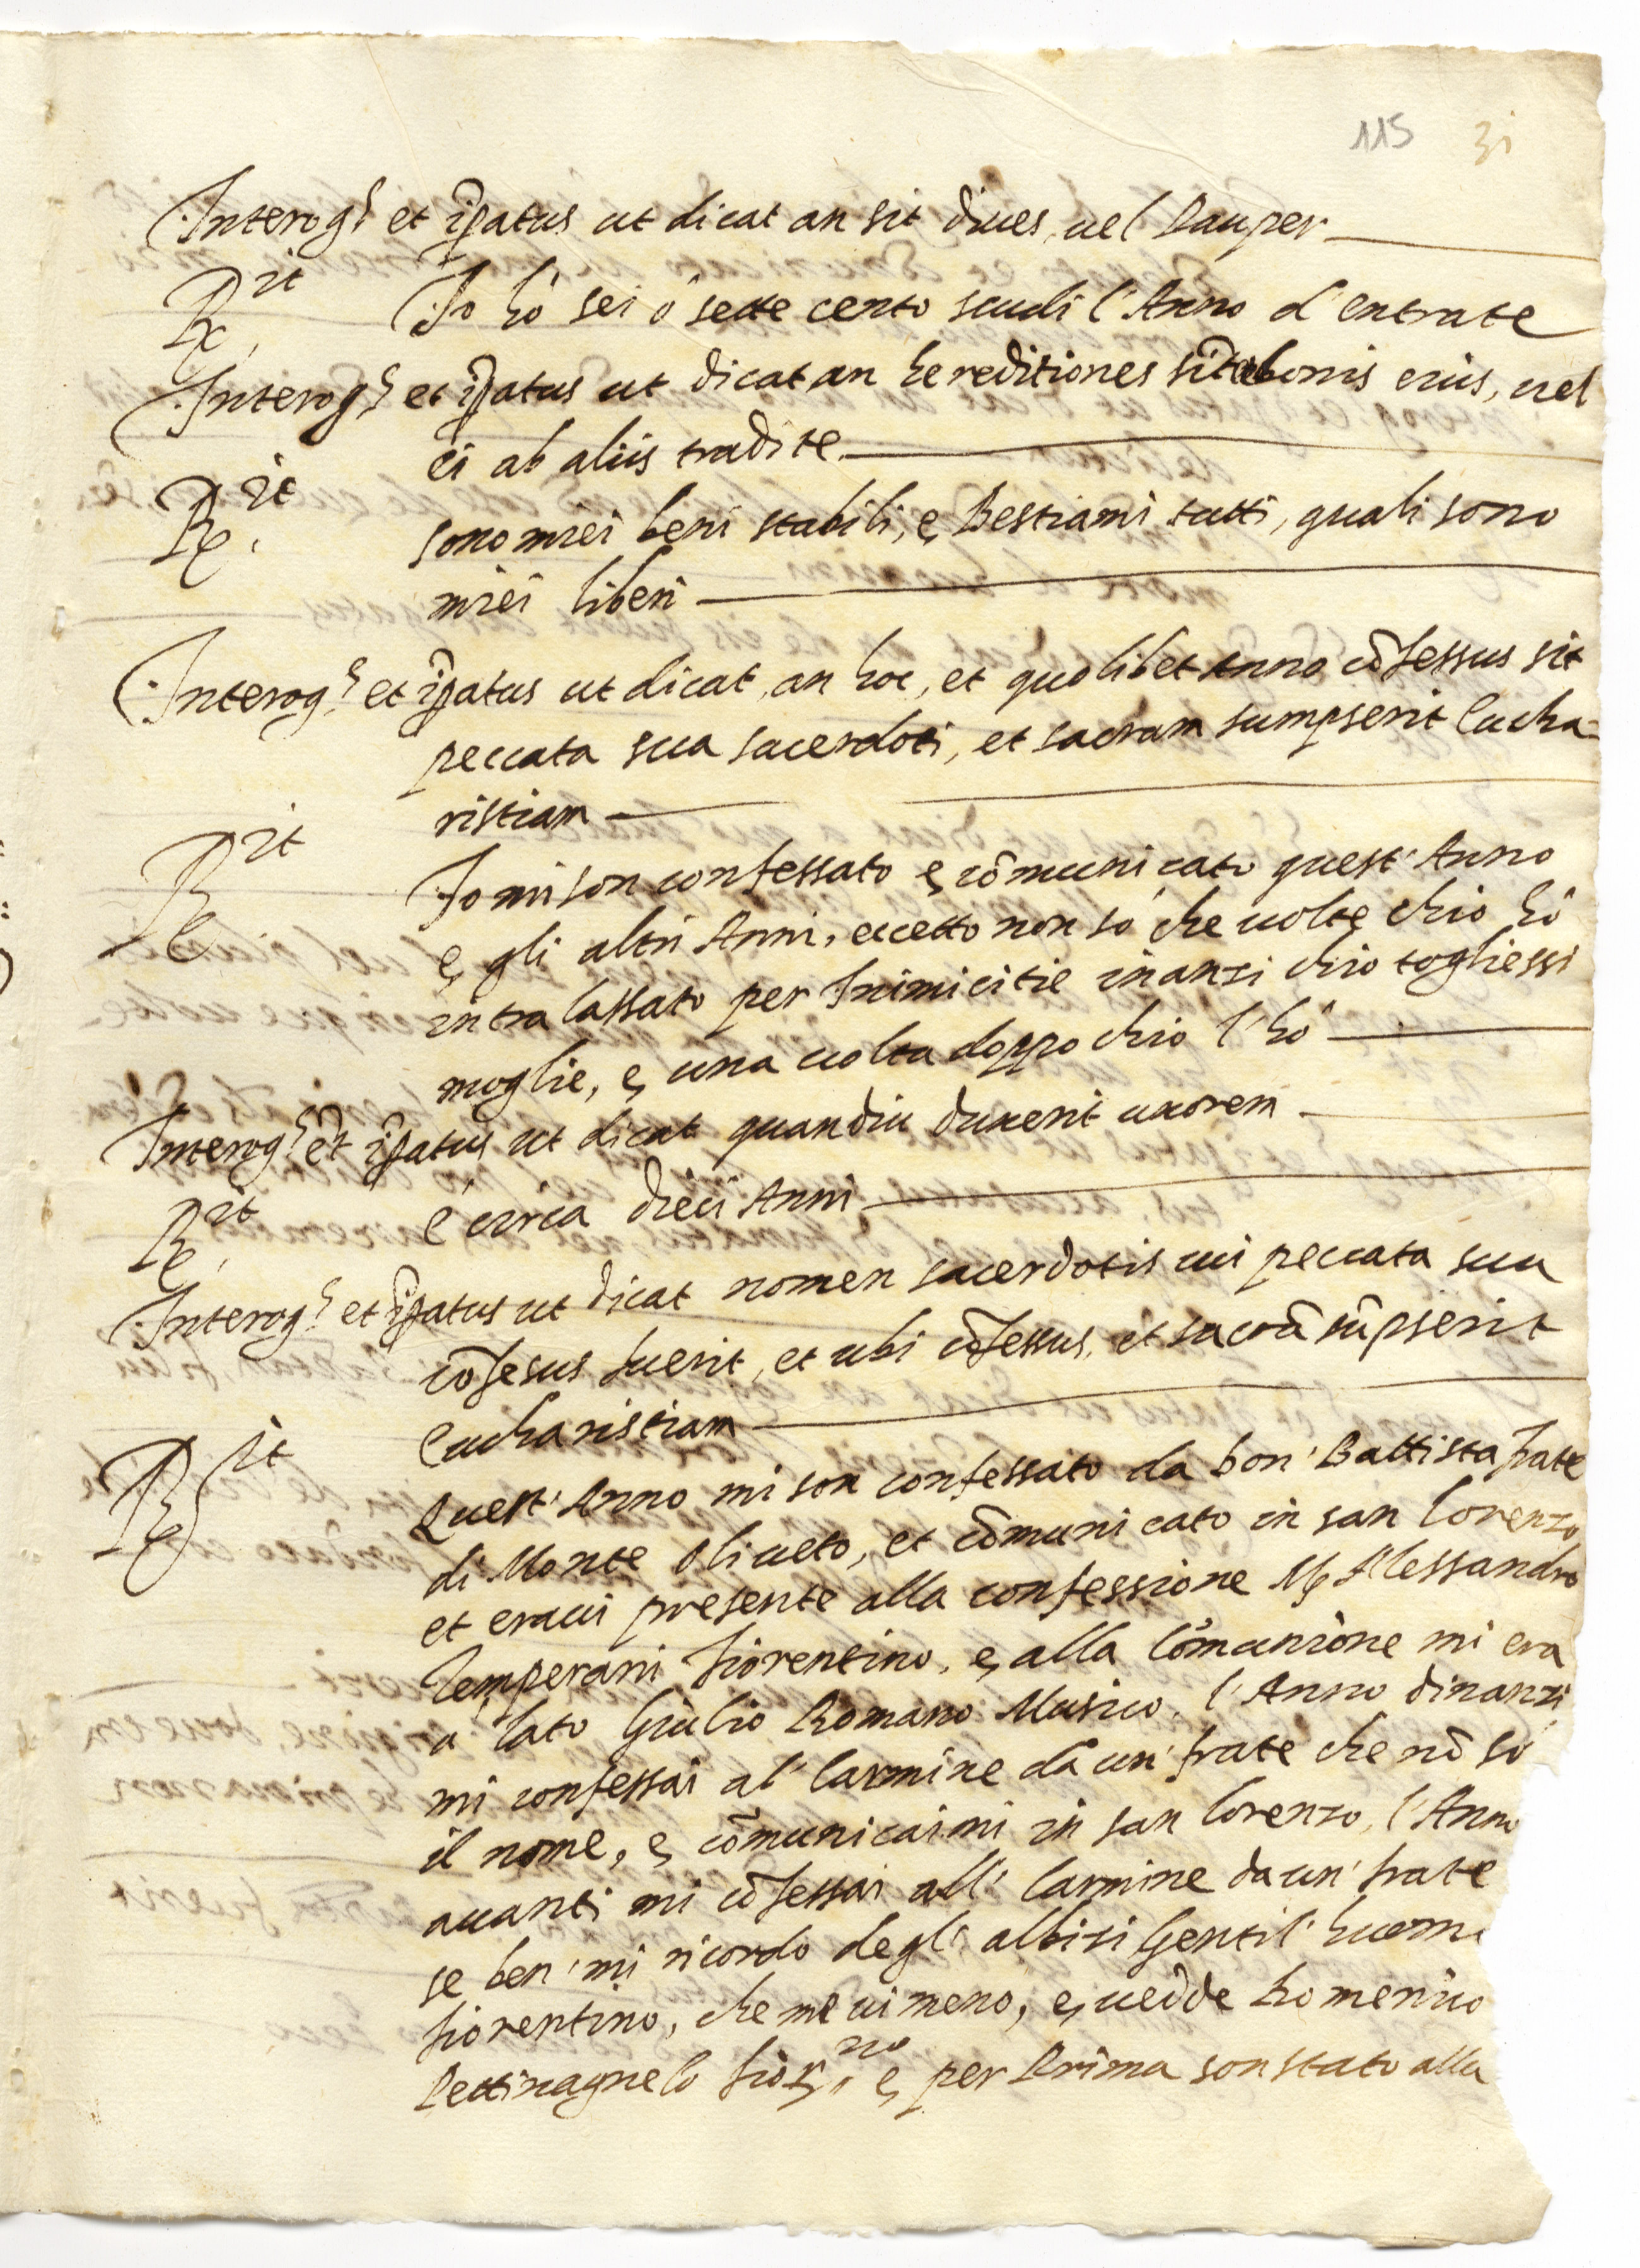 115 31
Interog.s et ip̃atus ut dicat an sit diues, uel Pauper
R.it Io hò sei ò sette cento scudi l'Anno d'entrate
Interog.s et ip̃atus ut dicat an hereditiones sit bonis eius, uel
ei ab aliis tradite
R.it sono miei beni stabili, e, Bestiami tutti, quali sono
miei liberi
Interog.s et ip̃atus ut dicat, an hoc, et quolibet Anno cõfessus sit
peccata sua sacerdoti, et sacram sumpserit Eucha-
ristiam
R.it Io mi son confessato e, cõmunicato quest'Anno
e, gli altri Anni, eccetto non sò che uolte, chio hò
intralassato per Inimicitie inanzi chio togliessi
moglie, e, una uolta doppo chio l'hò
Interog.s et ip̃atus ut dicat quandiu duxerit uxorem
R.it è circa dieci Anni
Interog.s et ip̃atus ut dicat nomen sacerdotis cui peccata sua
cõfesus fuerit, et ubi cõfessus, et sacrã sũpserit
Eucharistiam
R.it Quest'Anno mi son confessato da Don' Battista frate
di Monte Oliueto, et cõmunicato in san Lorenzo
et eraui presente alla confessione M. Alessandro
Temperani fiorentino, e, alla Cõmunione mi era
a lato Giulio Romano Musico, l'Anno dinanzi
mi confessai al' Carmine da un' frate che nõ sò
il nome, e, cõmunicaimi in san Lorenzo, l'Anno
auanti mi cõfessai all' Carmine da un' frate
se ben' mi ricordo degl' albizi Gentil' huom
fiorentino, che me ui meno, e, uedde Domenico
Pettinagnelo fior.no, e, per Prima son stato alla